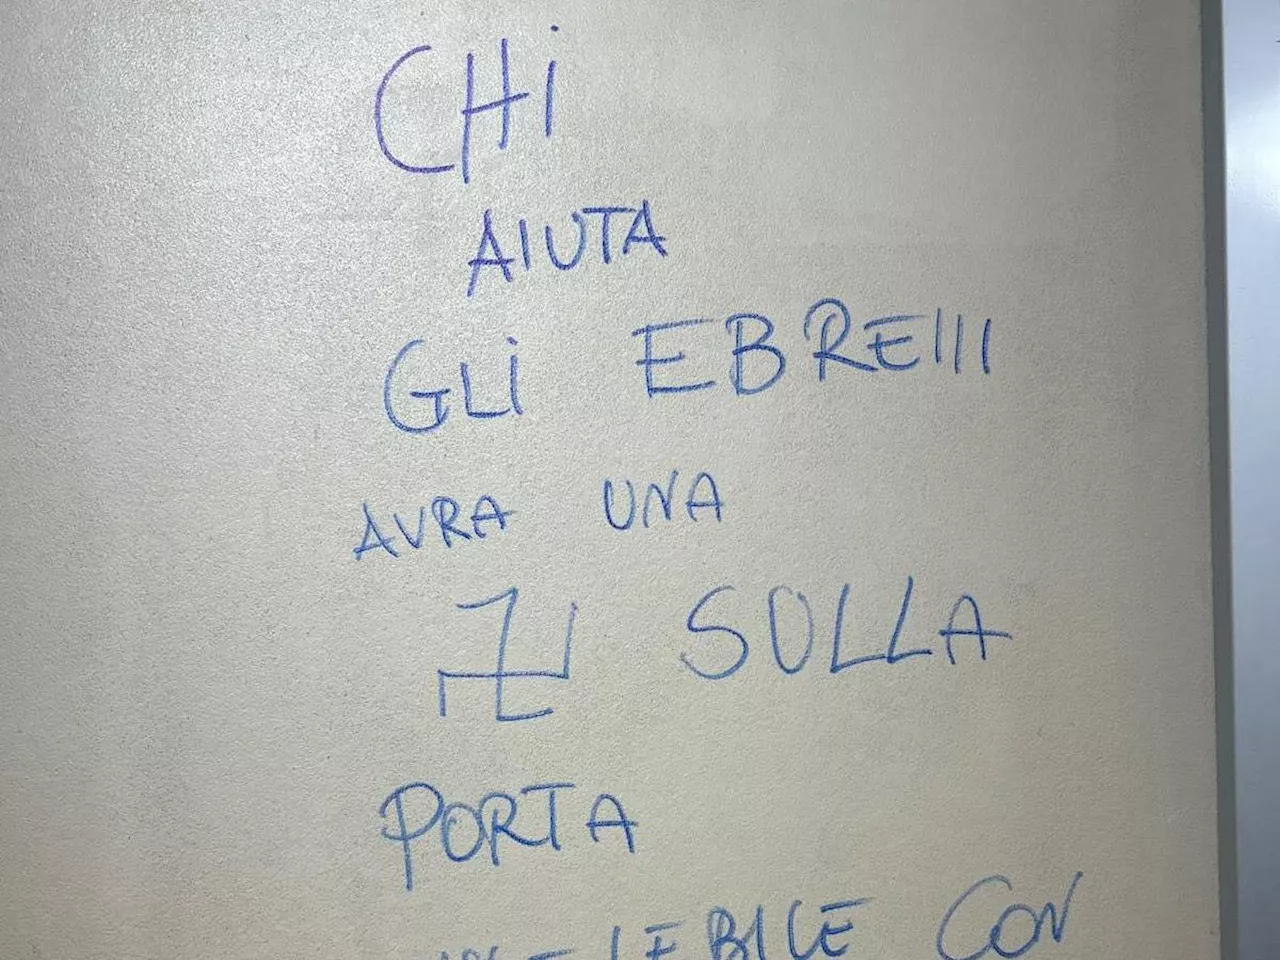 CHi
AIUTA
GLi EBREIII
AVRA UNA
SULLA
PORTA
CON